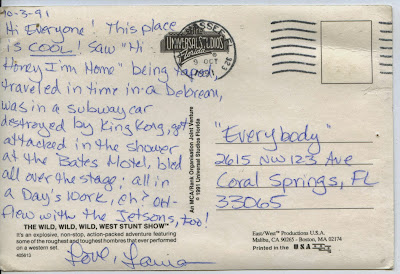 10-3-91
Hi Everyone! This place
is COOL! Saw "Hi
Honey I'm Home" being taped,
traveled in time in a Delorean,
was in a subway car
destroyed by King Kong, got
attacked in the shower
at the Bates Motel, bled
all over the stage; all in
a Day's Work, eh? Oh-
flew with the Jetsons, too!
THE WILD, WILD, WILD, WEST STUNT SHOW™
It's an explosive, non-stop, action-packed adventure featuring
some of the roughest and toughest hombres that ever performed
on a western set.
405613
Love,
UNIVERSAL STUDIOS
Florida
9 OCT
An MCA/Rank Organisation Joint Venture
© 1991 Universal Studios Florida
"Everybody"
2615 NW 123 Ave
Coral Springs, FL
33065
East/West™ Productions U.S.A.
Malibu, CA 90265 - Boston, MA 02174
Printed in the U S A